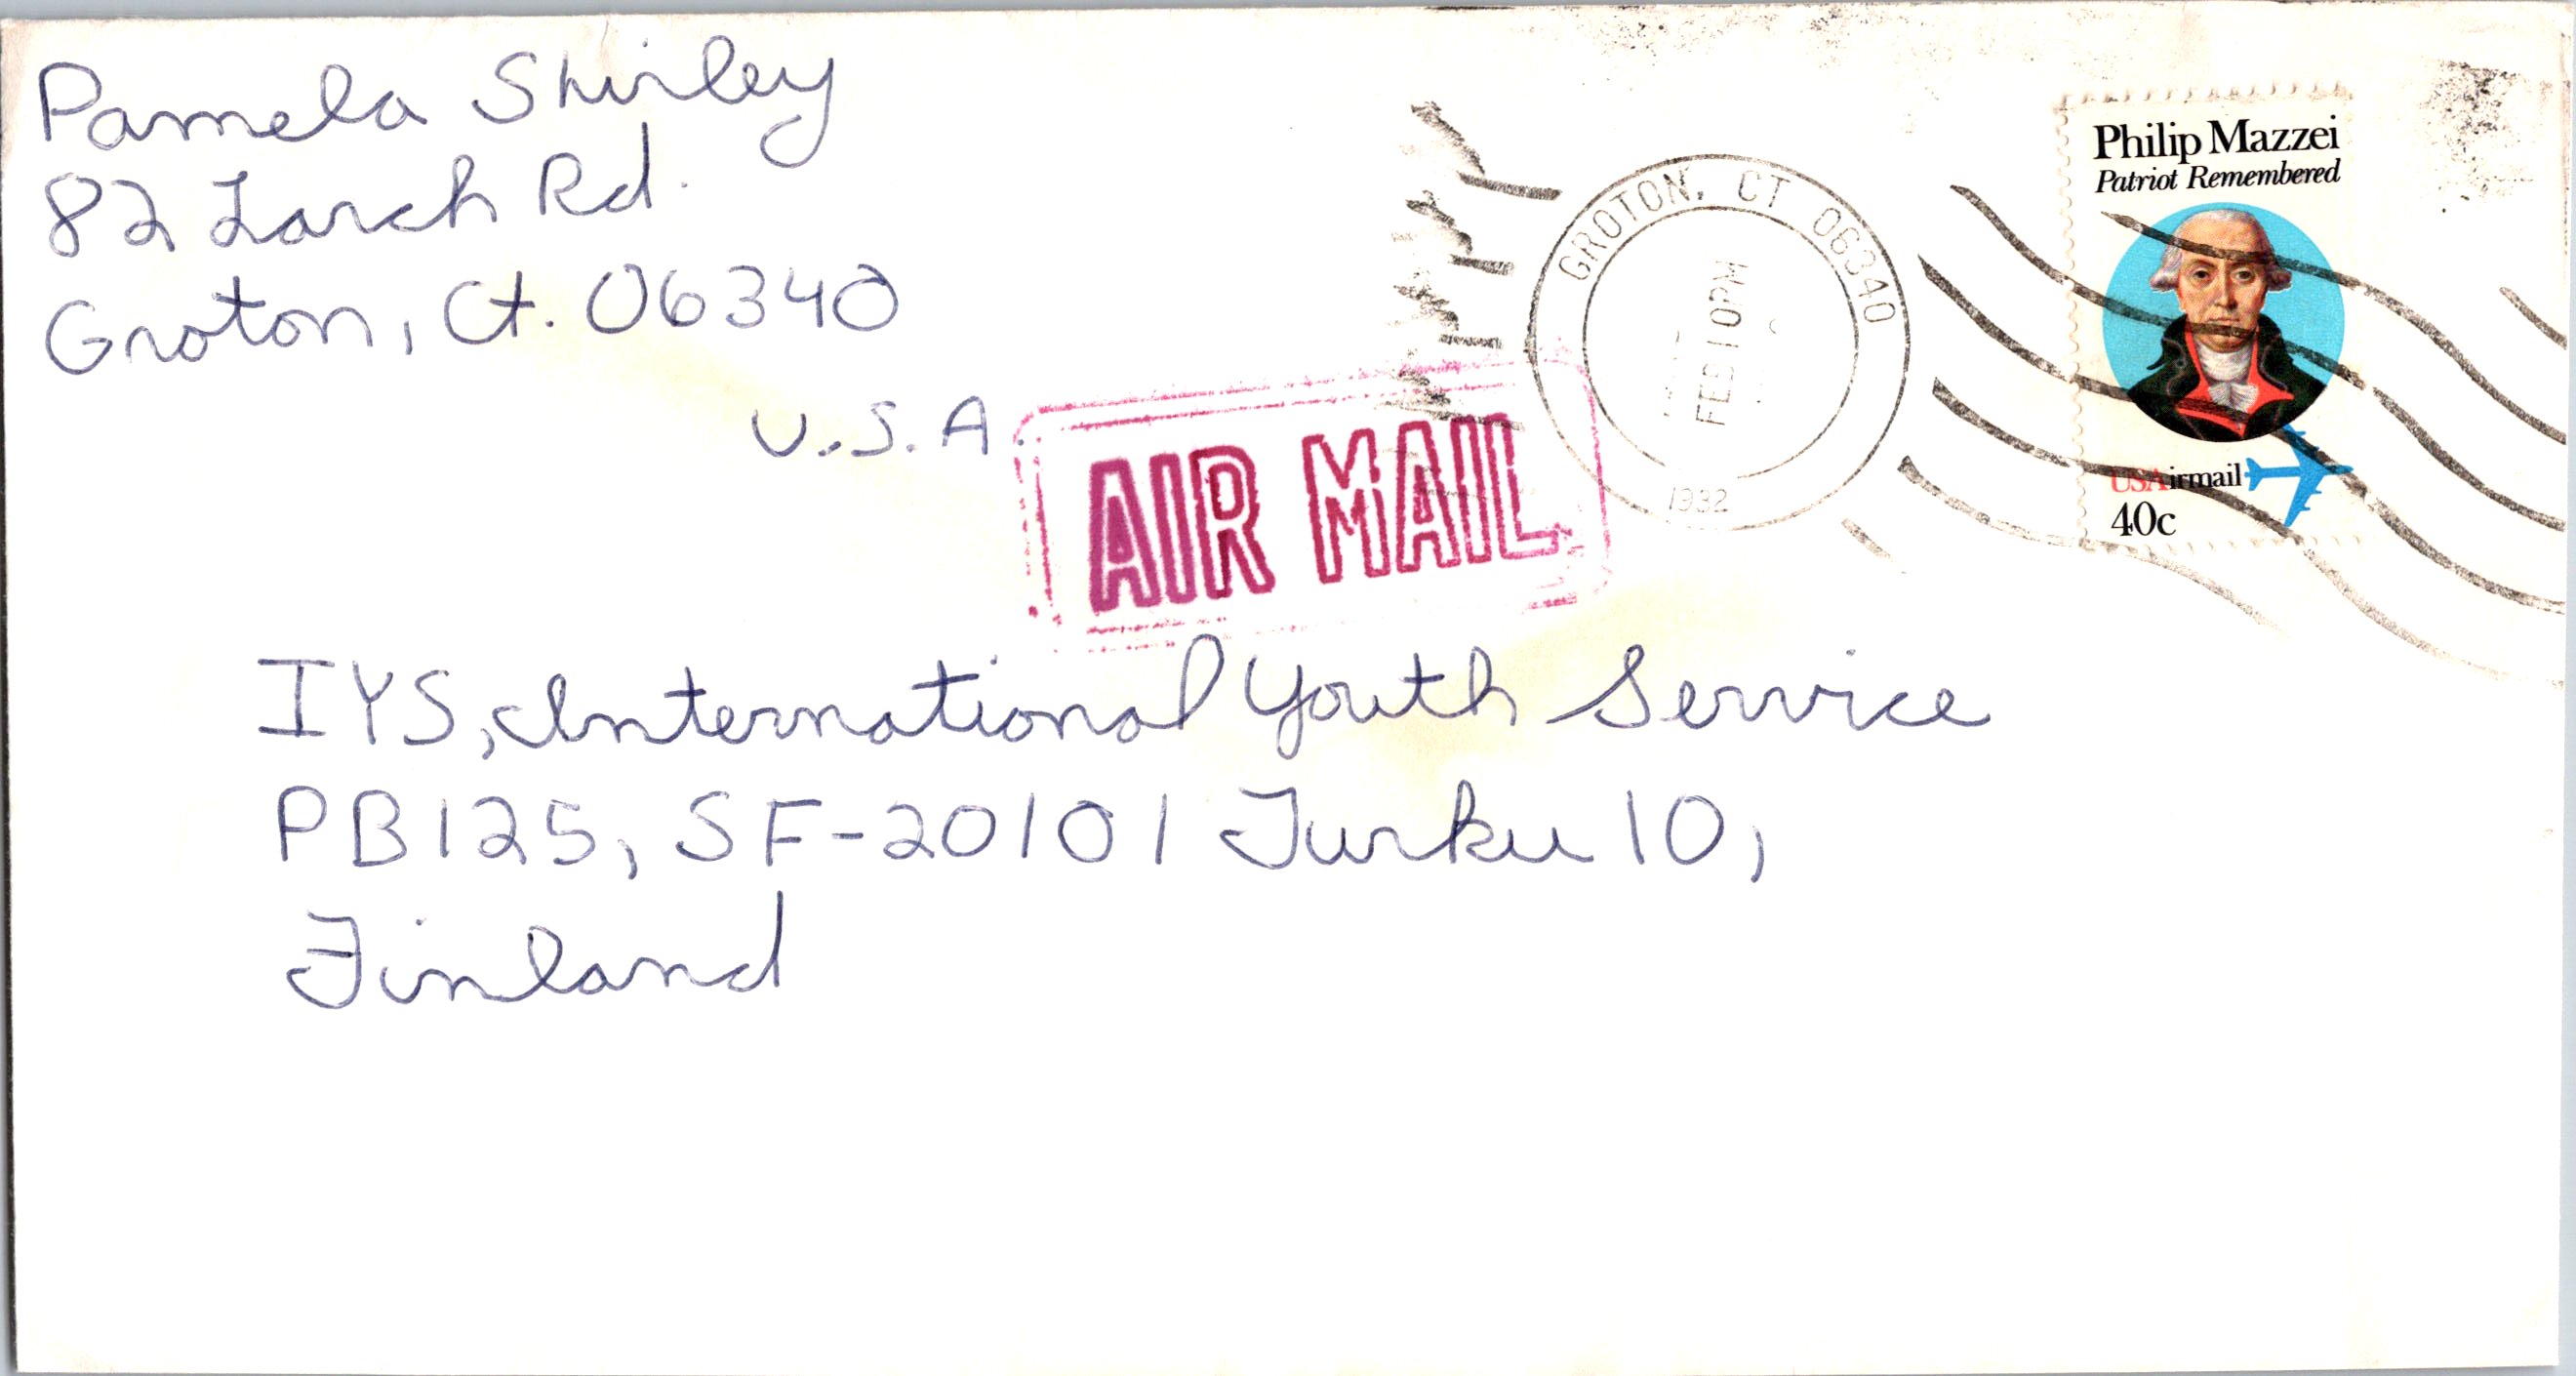 Pamela Shirley
82 Larch Rd.
Groton, Ct. 06340
U.S.A.
AIR MAIL
GROTON, CT 06340
FEB 10 PM
1932
Philip Mazzei
Patriot Remembered
USAirmail
40c
IYS, International Youth Service
PB125, SF-20101 Turku 10,
Finland